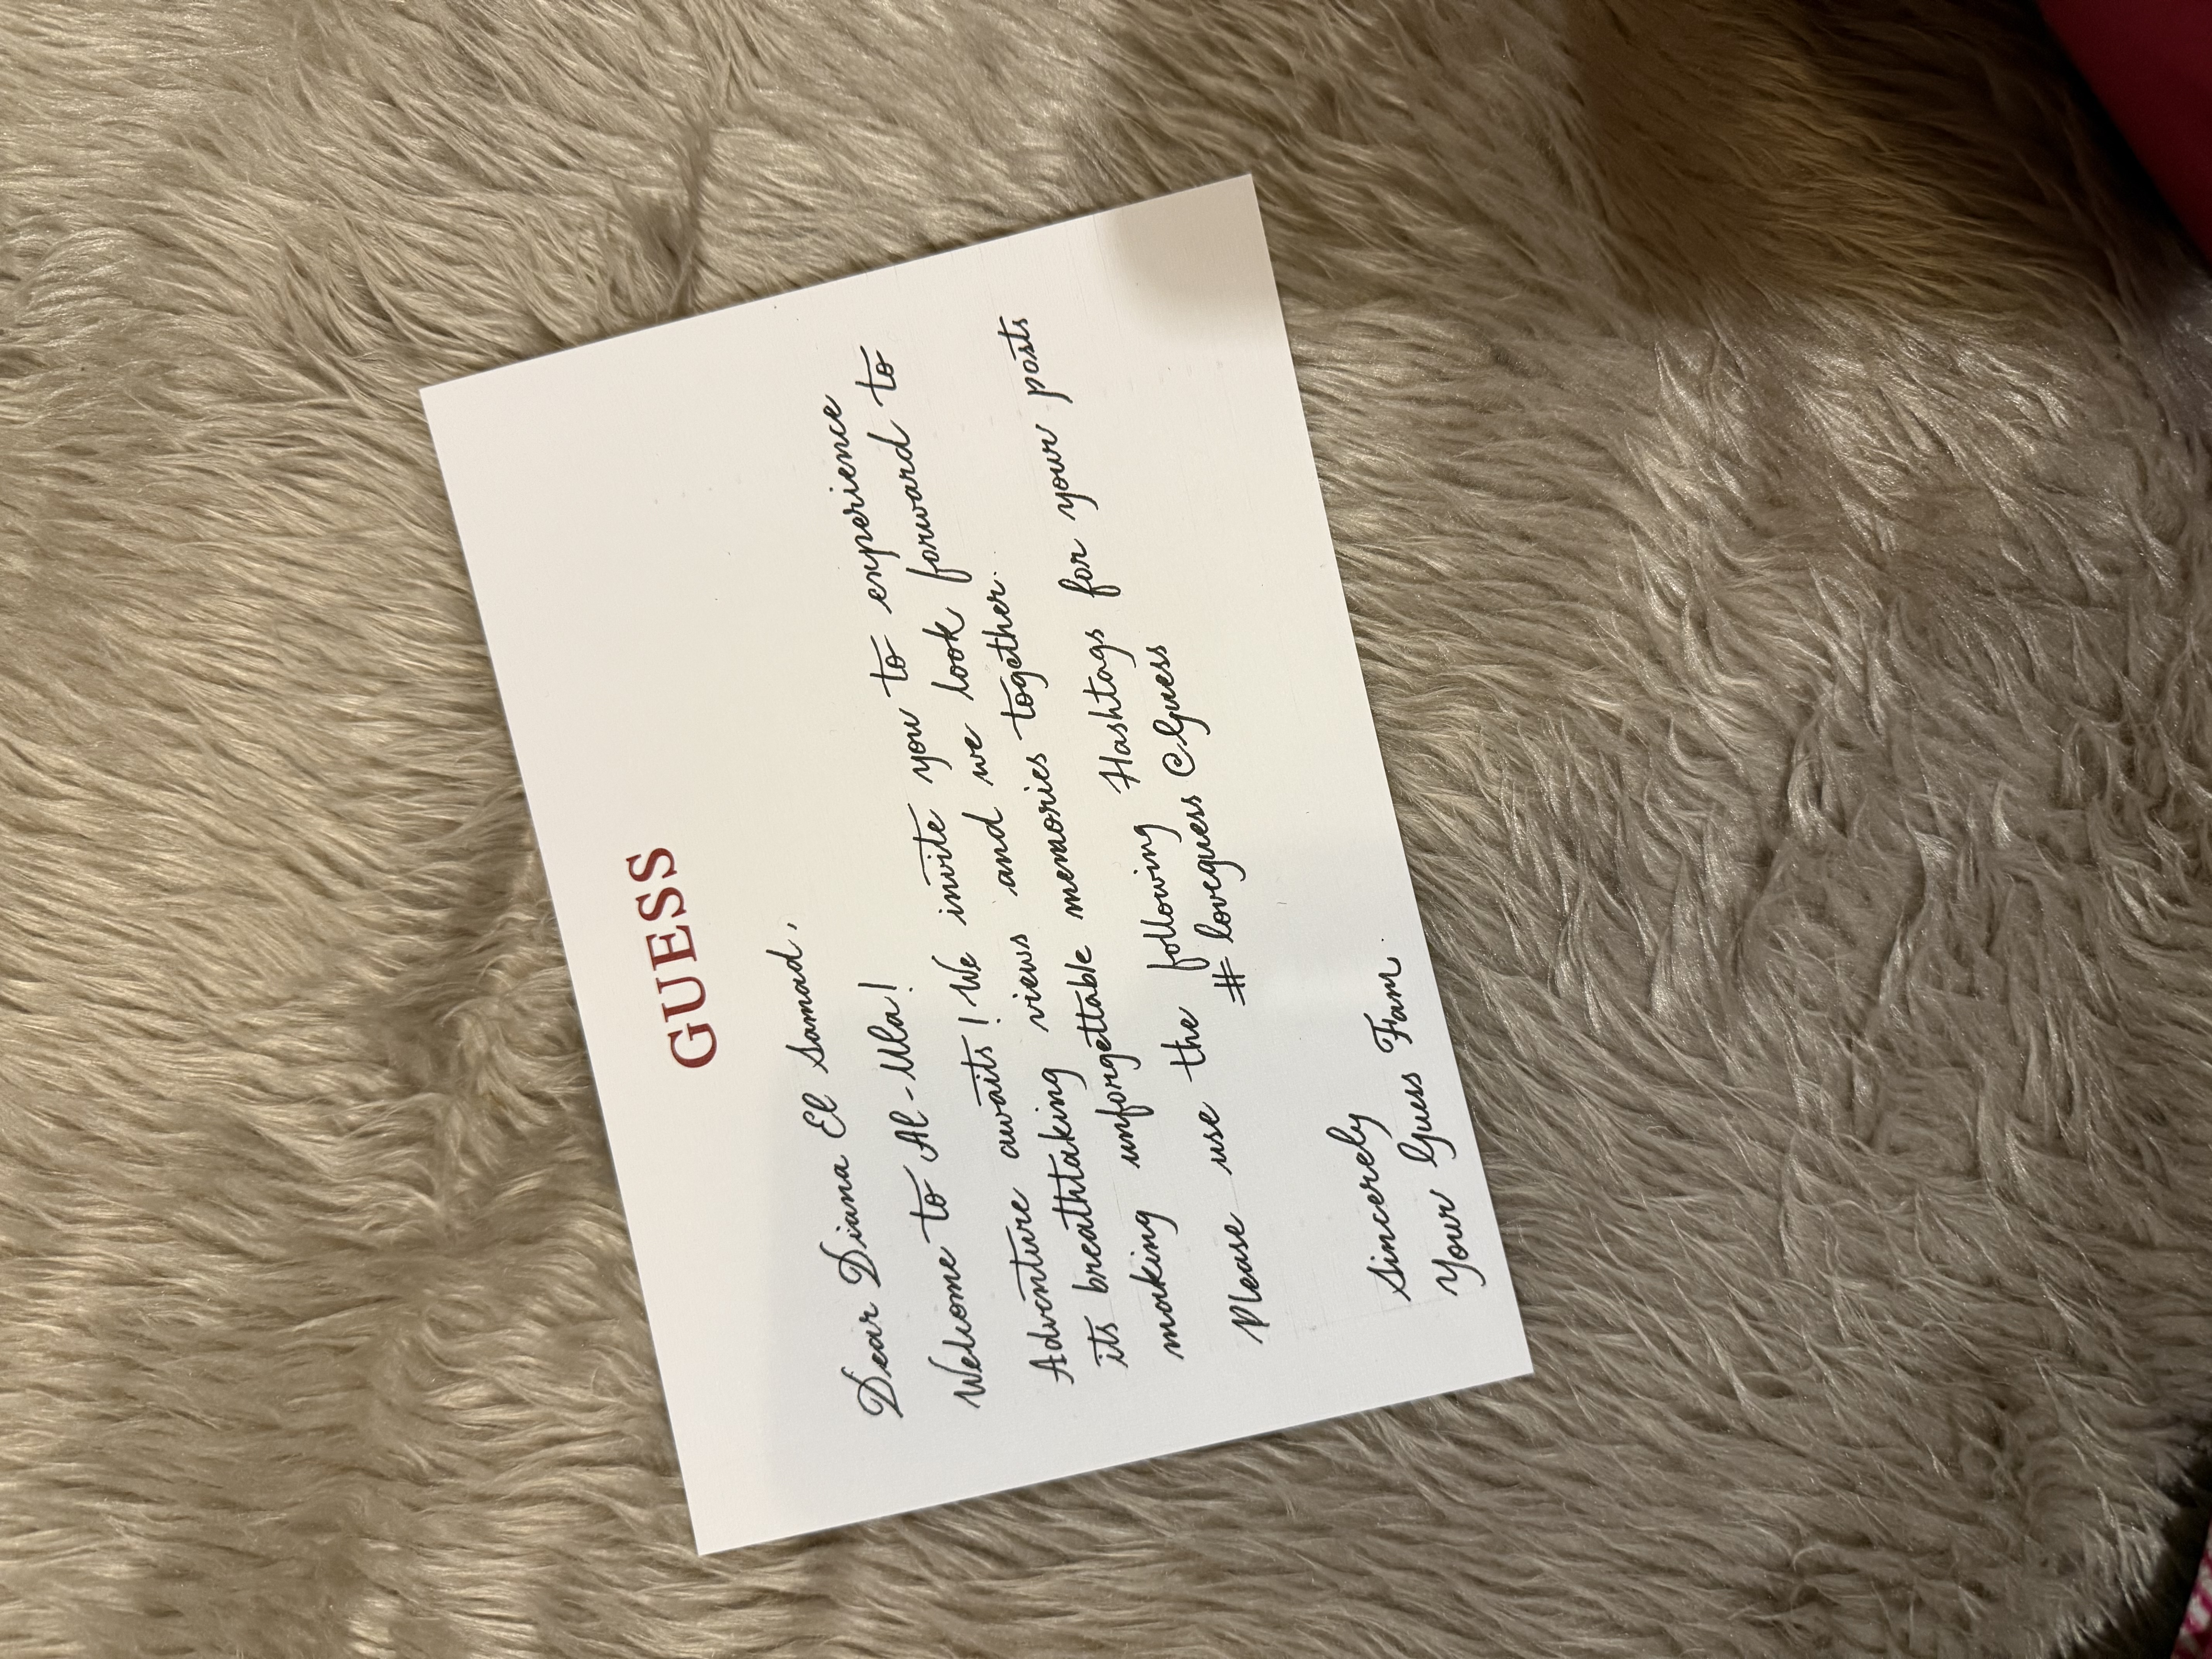 GUESS
Dear Diana El Samad,
Welcome to Al-Ula!
Adventure awaits! We invite you to experience
its breathtaking views and we look forward to
making unforgettable memories together.
Please use the following Hashtags for your posts
#loveguess @Guess
Sincerely
Your Guess Fam.